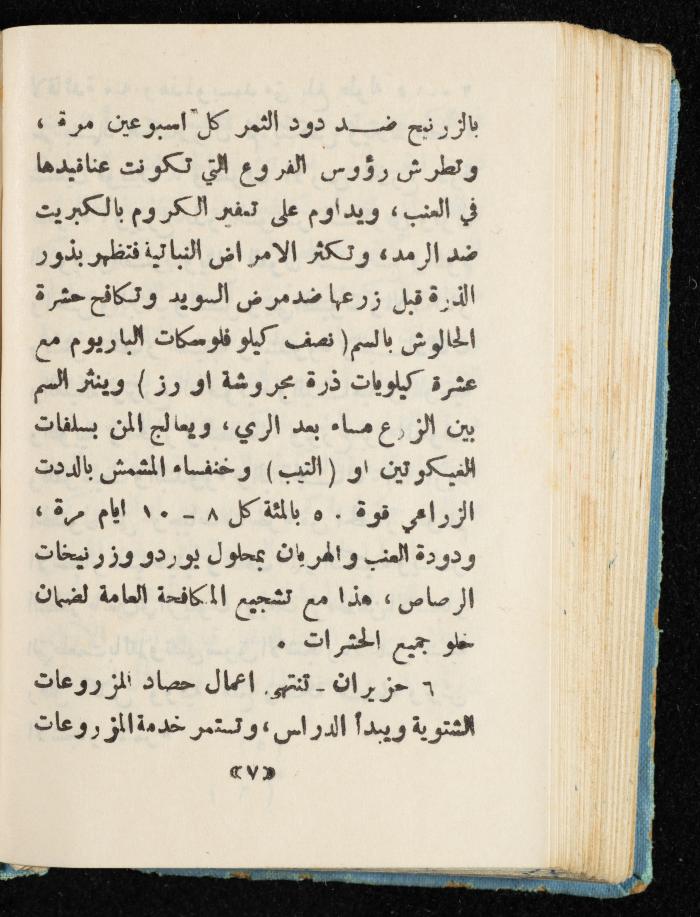 بالزرنيخ ضــد دود الثمر كل اسبوعين مرة ،
وتطرش رؤوس الفروع التي تكونت عناقيدها
في العنب ، ويداوم على تعفير الكروم بالكبريت
ضد الرمد ، وتكثر الامراض النباتية فتظهر بذور
الذرة قبل زرعها ضد مرض السويد وتكافح حشرة
الحالوش بالسم ( نصف كيلو فلوسكات الباريوم مع
عشرة كيلويات ذرة مجروشة او رز ) وينثر السم
بين الزرع مساء بعد الري ، ويعالج المن بسلفات
الفيكوتين او ( التيب ) وخنفساء المشمش بالددت
الزراعي قوة ٥٠ بالمئة كل ٨ - ١٠ ايام مرة ،
ودودة العنب والهربان بمحلول بوردو وزرنيخات
الرصاص ، هذا مع تشجيع المكافحة العامة لضمان
خلو جميع الحشرات .
٦ حزيران - تنتهي اعمال حصاد المزروعات
الشتوية ويبدأ الدراس ، وتستمر خدمة المزروعات
«٧»